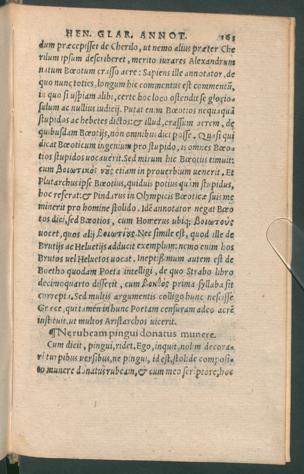 HEN. GLAR. ANNOT. 163
dum præcepisset de Cherilo, ut nemo alius præter Che
rilum ipsum describeret, merito iurares Alexandrum
natum Bœotum crasso aëre: Sapiens ille annotator, de
quo nunc toties, longum hic commentus est commentū,
ut quo si uspiam alibi, certe hoc loco ostendit se glorio=
sulum ac nullius iudicij. Putat enim Bœotios nequaquā
stupidos ac hebetes dictos: & illud, crassum aerem, de
quibusdam Bœotijs, non omnibus dici posse. Quasi qui
dicat Bœoticum ingenium pro stupido, is omnes Bœo=
tios stupidos uocauerit. Sed mirum hic Bœotius timuit:
cum Βοιωτικὸς νοῦς etiam in prouerbium uenerit. Et
Plutarchus ipse Bœotius, quiduis potius quàm stupidus,
hoc referat: & Pindarus in Olympicis Bœoticæ suis me
minerit pro homine stolido. Idē annotator negat Bœo
tos dici, sed Bœotios, cum Homerus ubiq; Βοιωτοὺς
uocet, quos alij Βοιωτίους. Nec simile est, quod ille de
Brutijs ac Heluetijs adducit exemplum: nemo enim hos
Brutos uel Heluetos uocat. Ineptissimum autem est de
Boetho quodam Poeta intelligi, de quo Strabo libro
decimoquarto disserit, cum prima syllaba sit
correpta. Sed multis argumentis colligo hunc nescisse
Græce, qui tamen in hunc Poetam censuram adeo acrē
instituit, ut multos Aristarchos uicerit.
¶ Ne rubeam pingui donatus munere.
Cum dicit, pingui, ridet. Ego, inquit, nolim decora=
ri turpibus uersibus, ne pingui, id est, stolide composi=
to munere donatus rubeam, & cum meo scriptore, hoc